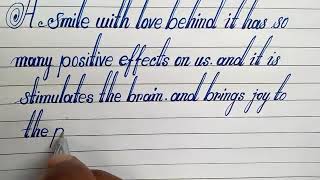 A smile with love behind it has so
many positive effects on us. and it is
stimulates the brain. and brings joy to
the p